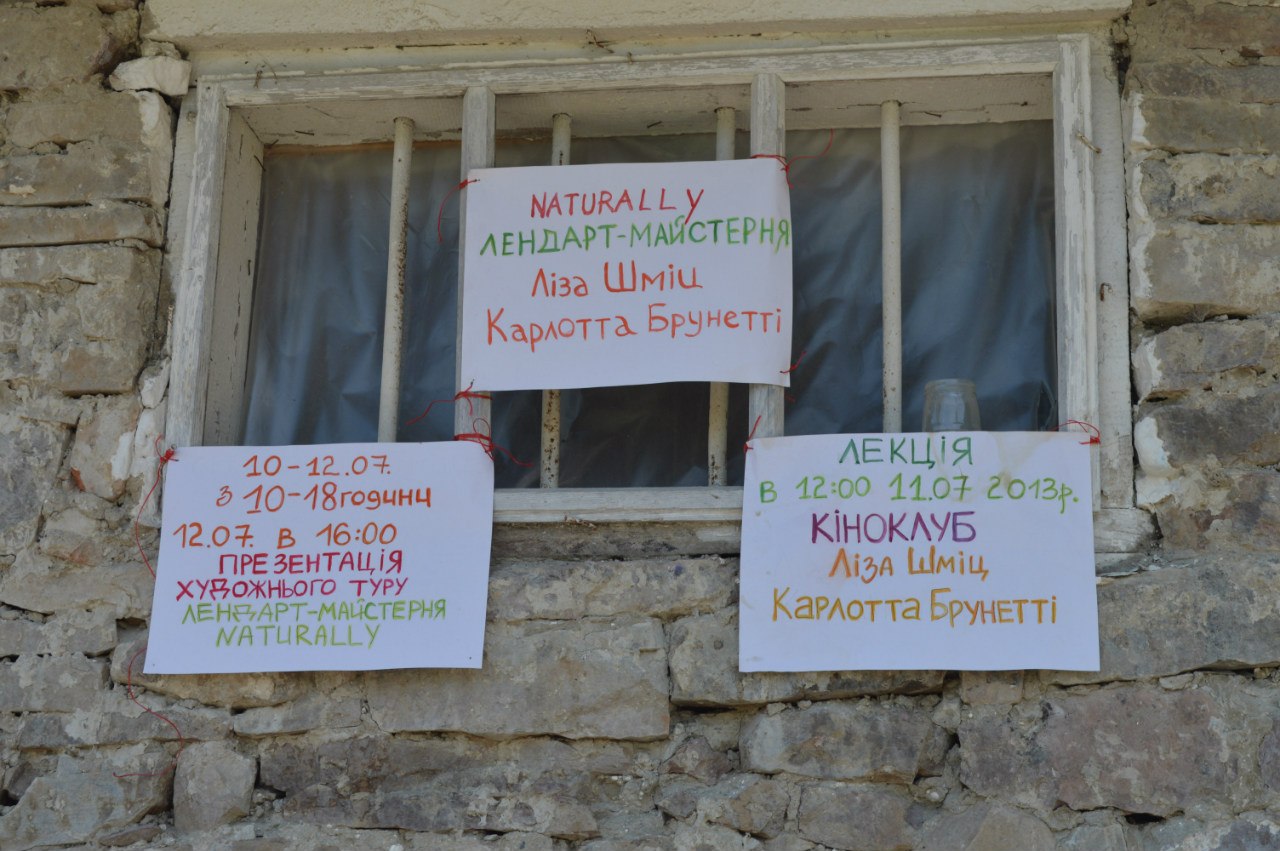 NATURALLY
ЛЕНДАРТ-МАЙСТЕРНЯ
Ліза Шміц
Карлотта Брунетті
10-12.07.
з 10-18 години
12.07. в 16:00
ПРЕЗЕНТАЦІЯ
ХУДОЖНЬОГО ТУРУ
ЛЕНДАРТ-МАЙСТЕРНЯ
NATURALLY
ЛЕКЦІЯ
в 12:00 11.07 2013р.
КІНОКЛУБ
Ліза Шміц
Карлотта Брунетті